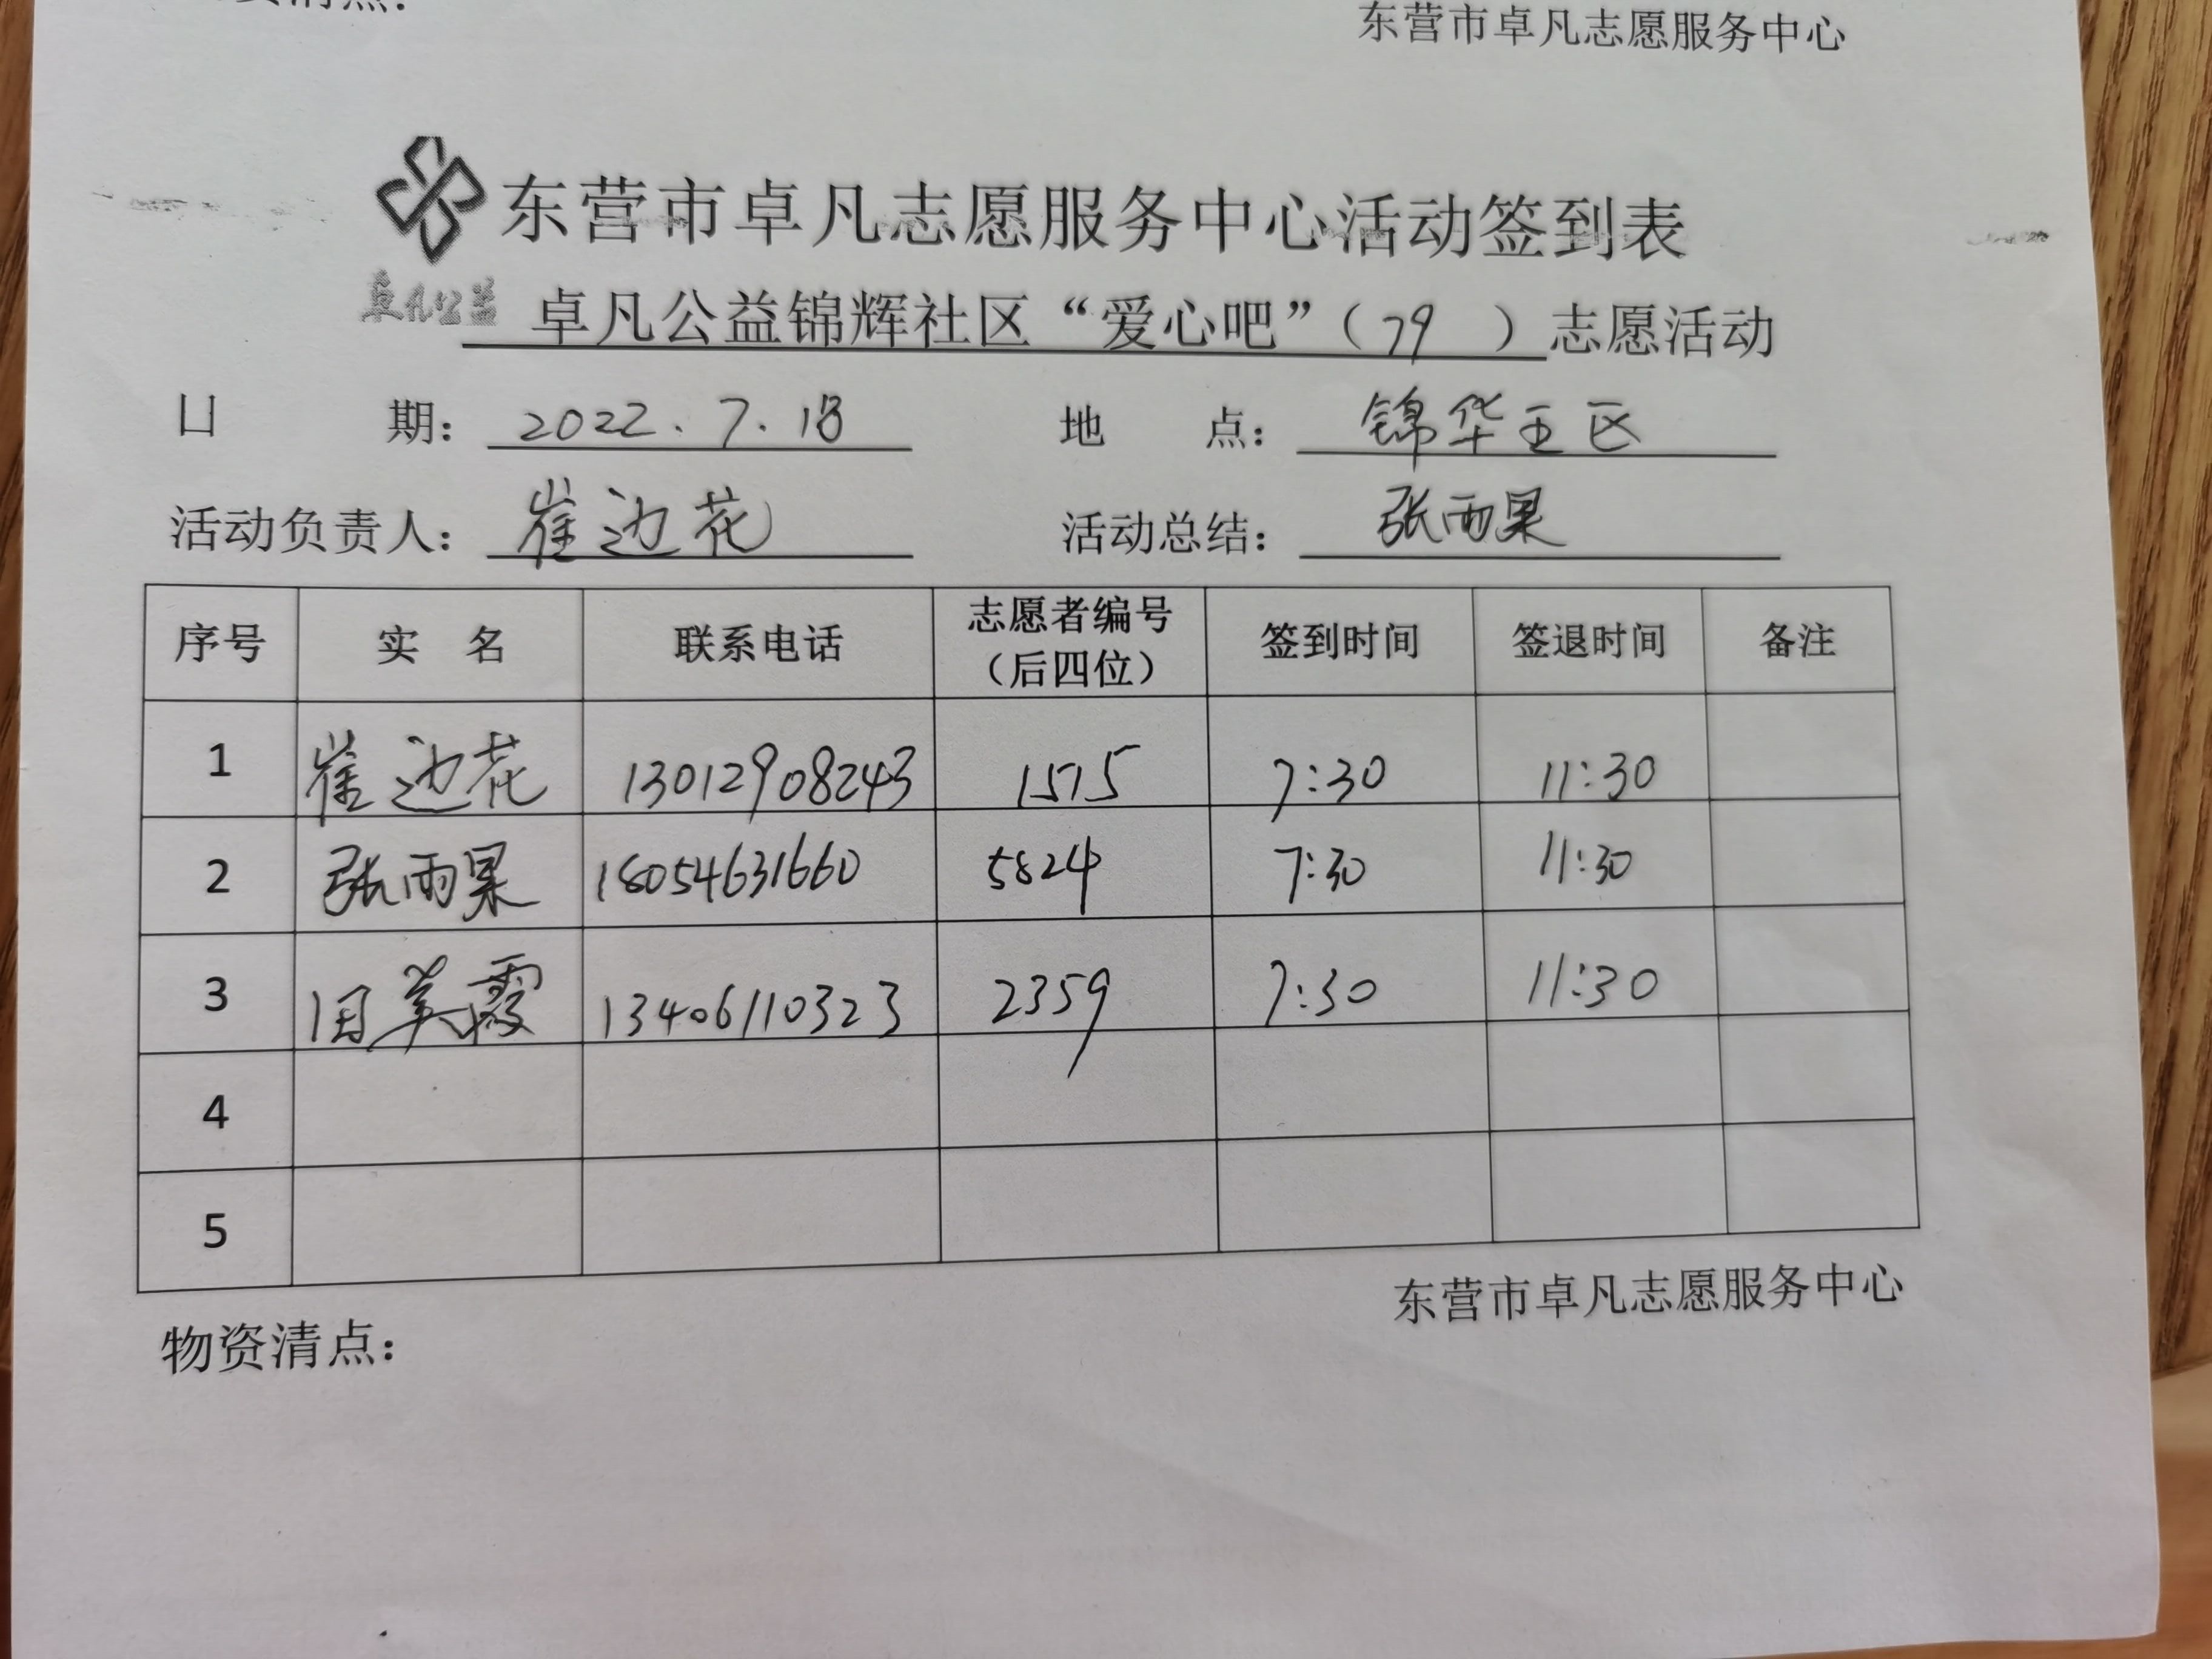 东营市卓凡志愿服务中心
东营市卓凡志愿服务中心活动签到表
卓凡公益 卓凡公益锦辉社区“爱心吧”（79）志愿活动
日 期： 2022.7.18 地 点： 锦华五区
活动负责人： 崔边花 活动总结： 张雨果
序号 实 名 联系电话 志愿者编号（后四位） 签到时间 签退时间 备注
1 崔边花 13012908243 1515 7:30 11:30
2 张雨果 18054631660 5824 7:30 11:30
3 美霞 13406110323 2359 7:30 11:30
4
5
东营市卓凡志愿服务中心
物资清点：